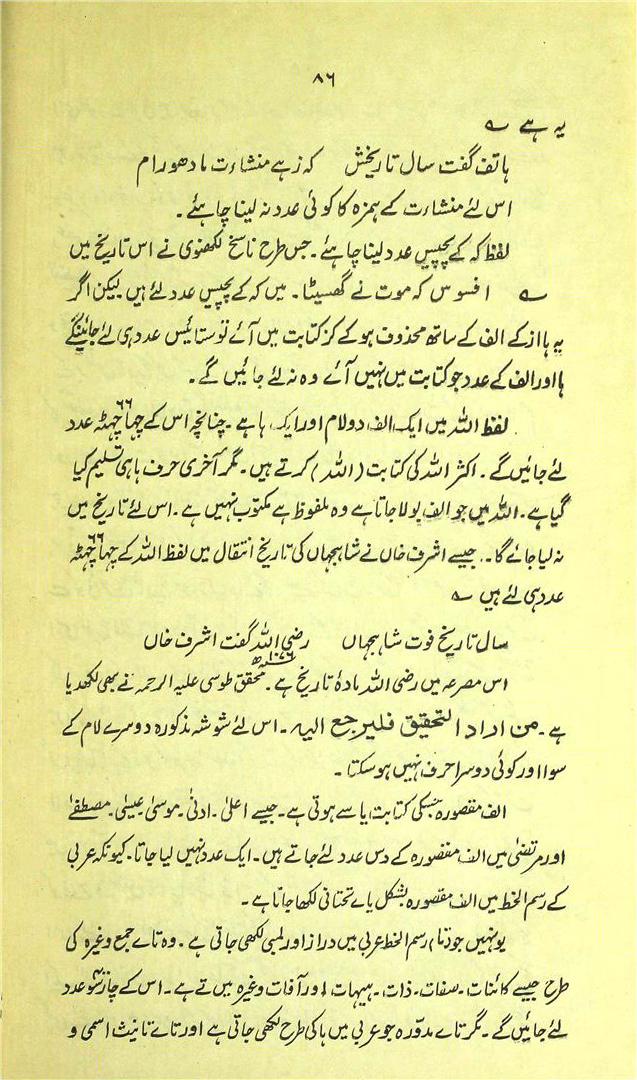 ۸۶
یہ ہے ؎
ہاتف گفت سال تاریخش کہ زہے منشاءت مادھو رام
اس لئے منشاءت کے ہمزہ کا کوئی عدد نہ لینا چاہئے۔
لفظ کہ کے پچیس عدد لینا چاہئے۔ جس طرح ناسخ لکھنوی نے اس تاریخ میں
؎ افسوس کہ موت نے گھسیٹا۔ میں کہ کے پچیس عدد لئے ہیں لیکن اگر
یہ ہا از کے الف کے ساتھ محذوف ہو کے کز کتابت میں آئے تو ستائیس عدد ہی لئے جائینگے
ہا اور الف کے عدد جو کتابت میں نہیں آئے وہ نہ لئے جائیں گے۔
لفظ اللہ میں ایک الف دو لام اور ایک ہا ہے۔ چنانچہ اس کے چھاچھٹہ ۶۶ عدد
لئے جائیں گے۔ اکثر اللہ کی کتابت (اللہ) کرتے ہیں۔ مگر آخری حرف ہا ہی تسلیم کیا
گیا ہے۔ اللہ میں جو الف بولا جاتا ہے وہ ملفوظ ہے مکتوب نہیں ہے۔ اس لئے تاریخ میں
نہ لیا جائے گا۔ جیسے اشرف خاں نے شاہجہاں کی تاریخ انتقال میں لفظ اللہ کے چھاچھٹہ ۶۶
عدد ہی لئے ہیں ؎
سال تاریخ فوت شاہجہاں رضی اللہ گفت اشرف خاں
اس مصرعہ میں رضی اللہ مادۂ تاریخ ہے۔ ۱۰۷۶ھ محقق طوسی علیہ الرحمہ نے بھی لکھدیا
ہے۔ من اراد التحقیق فلیرجع الیہ۔ اس لئے شوشہ مذکورہ دوسرے لام کے
سوا اور کوئی دوسرا حرف نہیں ہو سکتا۔
الف مقصورہ جسکی کتابت یا سے ہوتی ہے۔ جیسے اعلیٰ۔ ادنیٰ۔ موسیٰ۔ عیسیٰ۔ مصطفےٰ
اور مرتضیٰ میں الف مقصورہ کے دس عدد لئے جاتے ہیں۔ ایک عدد نہیں لیا جاتا۔ کیونکہ عربی
کے رسم الخط میں الف مقصورہ بشکل یاے تحتانی لکھا جاتا ہے۔
یونہیں جو (تا) رسم الخط عربی میں دراز اور لمبی لکھی جاتی ہے۔ وہ تاے جمع وغیرہ کی
طرح جیسے کائنات۔ صفات۔ ذات۔ ہیہات اور آفات وغیرہ میں تے ہے۔ اس کے چارسو عدد
لئے جائیں گے۔ مگر تاے مدوّرہ جو عربی میں ہا کی طرح لکھی جاتی ہے اور تاے تانیث اسمی و